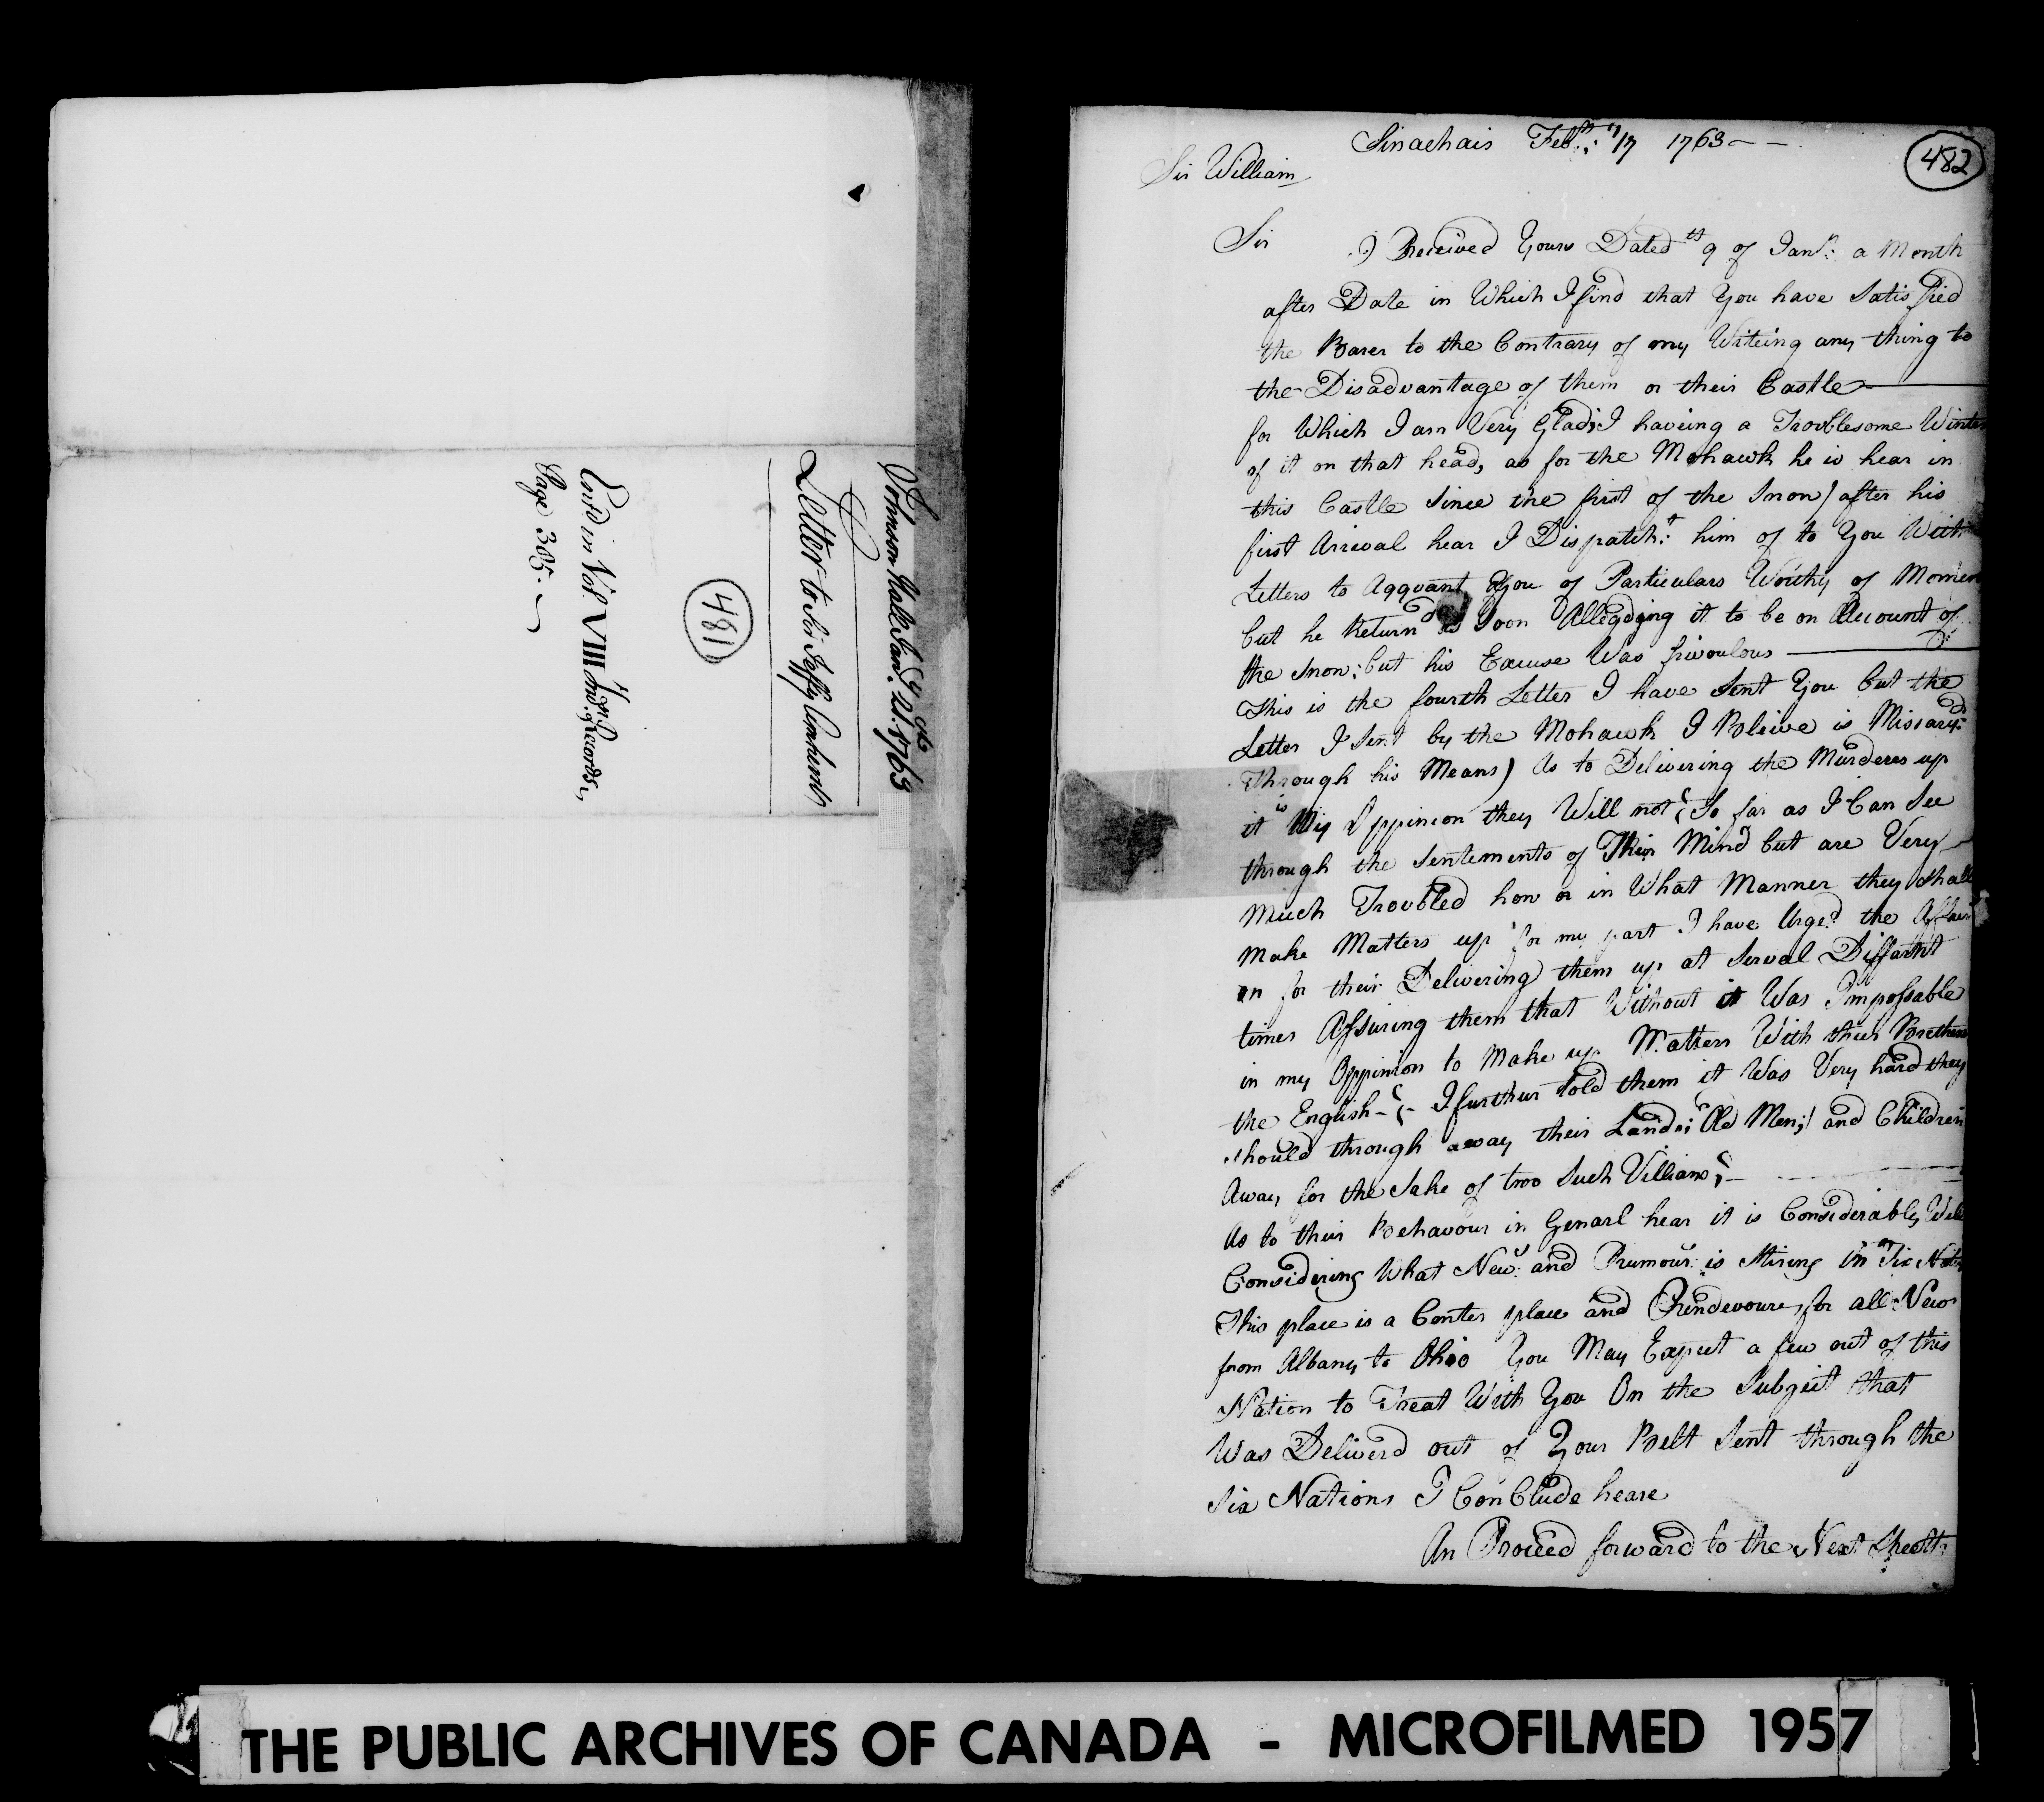 Johnson Hall Janry. 21st. 1763
Letter to Sir Jeffy Amherst
481
Entd in Vol VIII Ind. Records,
Page 305.
482
Sinachais Febry: 17 1763 - -
Sir William
Sir I Received Yours Dated th 9 of Janr: a Month
after Date in Which I find that You have Satisfied
the Barer to the Contrary of my Writeing any thing to
the Disadvantage of them or their Castle
for Which I am Very Glad; I haveing a Troublesome Winter
of it on that head, as for the Mohawk he is hear in
this Castle Since the first of the Snow) after his
first Arrival hear I Dispatch:t him of to You With
Letters to Aqquant You of Particulars Worthy of Momen
but he Return'd as Soon Alledging it to be on Account of
the Snow; but his Excuse Was frivoulous
This is the fourth Letter I have Sent You but the
Letter I Sent by the Mohawk I Beleive is Miscary:d
Through his Means) As to Delivering the Murderes up
it is My Oppinion they Will not; So far as I Can See
through the Sentements of Their Mind but are Very
Much Troubled how or in What Manner they Shall
Make Matters up for my part I have Urge:d the Affair
on for their Delivering them up at Serval Diffarnt
times Assuring them that Without it Was Impossable
in my Oppinion to Make up Matters With their Bretheren
the English - I further told them it Was Very hard they
should through away their Lands; Old Men; and Children
Away for the Sake of two Such Villians;
As to their Behavour in Genarl hear it is Considerably Well
Considering What News and Rumours is Stiring in Six Nats
This place is a Center place and Rendevoure for all News
from Albany to Ohio You May Expect a few out of this
Nation to Treat With You On the Subject that
Was Deliverd out of Your Belt Sent through the
Six Nations I Conclude heare
An Proceed forward to the Next Sheett
THE PUBLIC ARCHIVES OF CANADA - MICROFILMED 1957